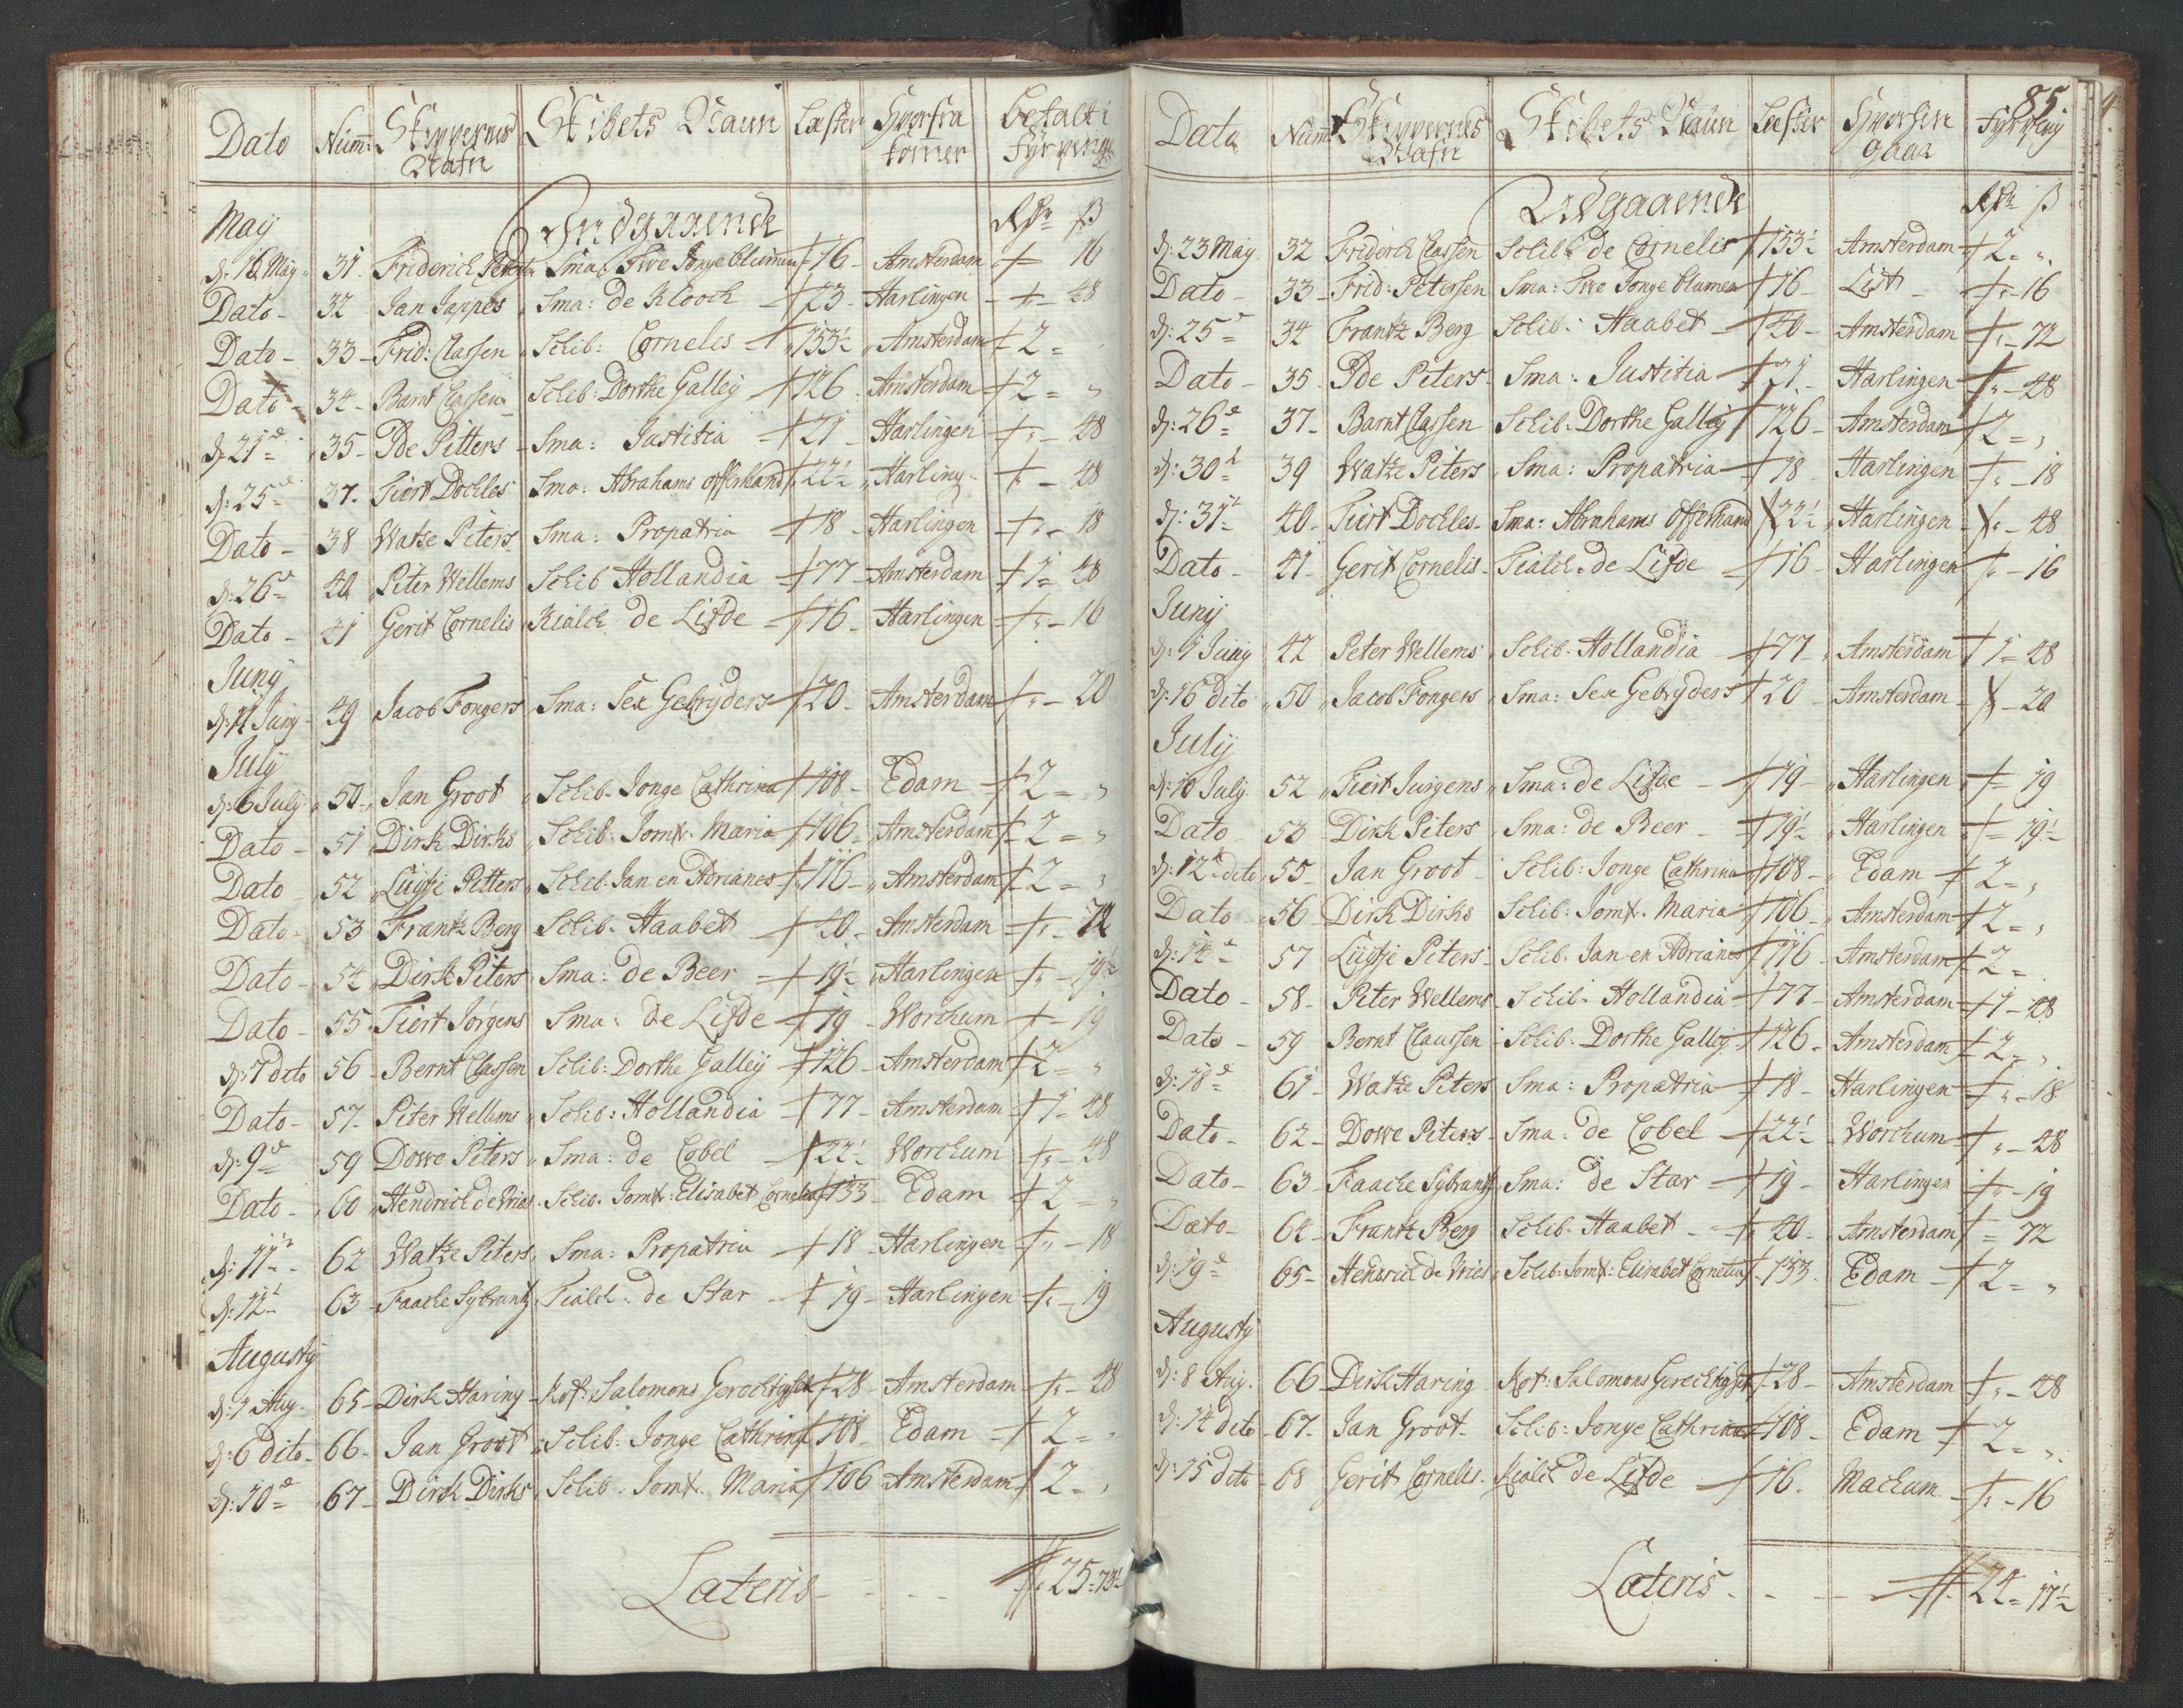 Dato Num: Skippernes Nafn Skibets Naun Læster Hvorfra komer betalt i Fyrpenge
May Indgaaende Rdr ß
d: 16 May 31 Friderich Petersen Sma: Twe Jonge blumen 16 Amsterdam 16
Dato 32 Jan Jappes Sma: de Klooch 23 Harlingen 48
Dato 33 Frid: Classen Schib: Cornelis 153½ Amsterdam 2
Dato 34 Barnt Classen Schib: Dorthe Galley 126 Amsterdam 2
d: 21de 35 Ide Pitters Sma: Justitia 21 Harlingen 48
d: 25de 37 Tiert Dockles Sma: Abrahams offerhand 22½ Harling 48
Dato 38 Watze Piters Sma: Propatria 18 Harlingen 18
d: 26de 40 Piter Willems Schib Hollandia 77 Amsterdam 1 48
Dato 41 Gerit Cornelis Kialck de Lifde 16 Harlingen 16
Juny
d: 11 Juny 49 Jacob Fongers Sma: Sex Gebryders 20 Amsterdam 20
July
d: 6 July 50 Jan Groot Schib. Jonge Cathrina 108 Edam 2
Dato 51 Dirk Dirks Schib. Jomf. Maria 106 Amsterdam 2
Dato 52 Luytje Pitters Schib. Jan en Adrianes 116 Amsterdam 2
Dato 53 Frantz Berg Schib. Haabet 40 Amsterdam 72
Dato 54 Dirk Piters Sma: de Beer 19½ Harlingen 19½
Dato 55 Tiert Jörgens Sma: de Lifde 19 Worckum 19
d: 7 dito 56 Bernt Classen Schib: Dorthe Galley 126 Amsterdam 2
Dato 57 Piter Wellems Schib: Hollandia 77 Amsterdam 1 48
d: 9de 59 Dowe Piters Sma: de Cobel 22½ Worckum 48
Dato 60 Hendrich de Vries Schib. Jomf: Elisabet Cornelia 133 Edam 2
d: 11te 62 Watze Piters Sma: Propatria 18 Harlingen 18
d: 12t 63 Faacke Sybrantz Tialck de Star 19 Harlingen 19
Augusty
d: 1 Aug. 65 Dirk Haring Kof: Salomons Gerechtighet 28 Amsterdam 48
d: 6 dito 66 Jan Groot Schib: Jonge Cathrina 108 Edam 2
d: 10de 67 Dirk Dirks Schib. Jomf. Maria 106 Amsterdam 2
Lateris 25 = 73½
85
Dato Num: Skippernes Nafn Skibets Naun Læster Hvorhen gaar Fyrpeng
Udgaaende Rdr ß
d: 23 May 32 Friderich Classen Schib: de Cornelis 153½ Amsterdam 2
Dato 33 Frid: Petersen Sma: Twe Jonge blumen 16 List 16
d: 25de 34 Frantz Berg Schib: Haabet 40 Amsterdam 72
Dato 35 Ide Piters Sma: Justitia 21 Harlingen 48
d: 26de 37 Barnt Classen Schib: Dorthe Galley 126 Amsterdam 2
d: 30te 39 Watze Piters Sma: Propatria 18 Harlingen 18
d: 31te 40 Tiert Dockles Sma: Abrahams offerhand 22½ Harlingen 48
Dato 41 Gerit Cornelis Tialck de Lifde 16 Harlingen 16
Juny
d: 1 Juny 42 Peter Wellems Schib. Hollandia 77 Amsterdam 1 48
d: 16 dito 50 Jacob Fongers Sma: Sex Gebryders 20 Amsterdam 20
July
d: 10 July 52 Tiert Jurgens Sma: de Lifde 19 Harlingen 19
Dato 53 Dirk Piters Sma: de Beer 19½ Harlingen 19½
d: 12te dito 55 Jan Groot Schib: Jonge Cathrina 108 Edam 2
Dato 56 Dirk Dirks Schib: Jomf. Maria 106 Amsterdam 2
d: 14de 57 Luytje Piters Schib. Jan en Adrianes 116 Amsterdam 2
Dato 58 Piter Wellems Schib. Hollandia 77 Amsterdam 1 48
Dato 59 Bernt Claussen Schib. Dorthe Galley 126 Amsterdam 2
d: 18de 61 Watze Piters Sma: Propatria 18 Harlingen 18
Dato 62 Dowe Piters Sma: de Cobel 22½ Worckum 48
Dato 63 Faacke Sybrantz Sma: de Star 19 Harlingen 19
Dato 64 Frantz Berg Schib. Haabet 40 Amsterdam 72
d: 19de 65 Hendrich de Vries Schib: Jomf: Elisabet Cornelia 133 Edam 2
Augusty
d: 8 Aug. 66 Dirk Haring Kof: Salomons Gerechtighet 28 Amsterdam 48
d: 14 dito 67 Jan Groot Schib: Jonge Cathrina 108 Edam 2
d: 15 dito 68 Gerit Cornelis Kialck de Lifde 16 Mackum 16
Lateris 24 = 17½